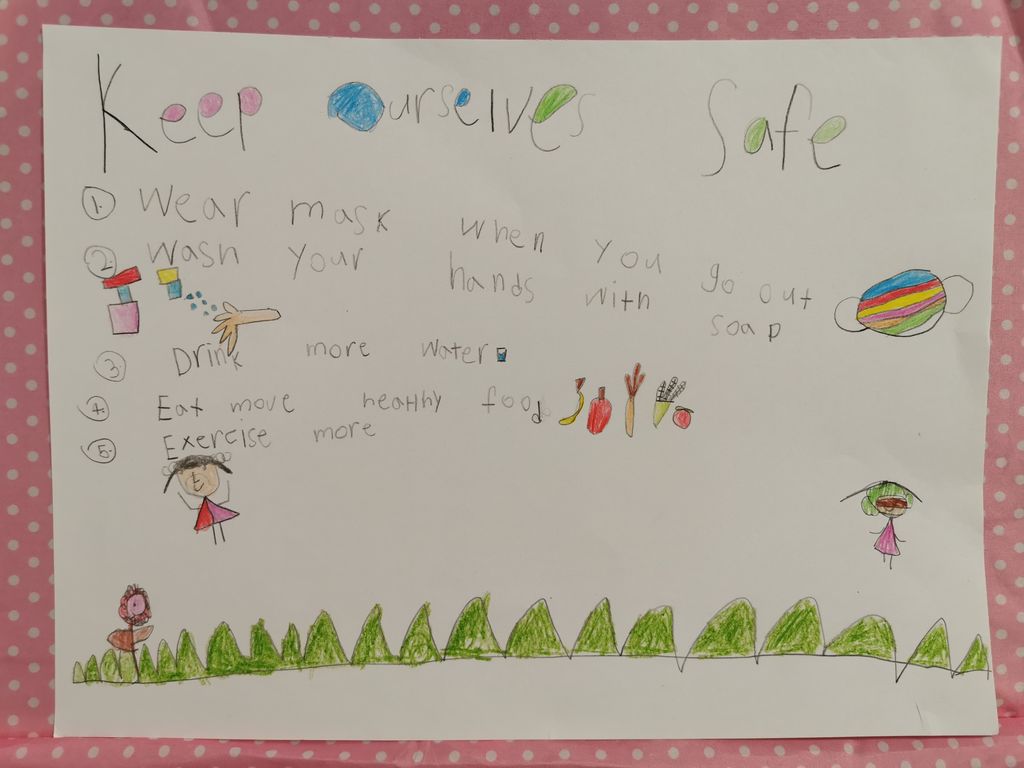 Keep Ourselves Safe
1. Wear mask when you go out
2. Wash your hands with soap
3. Drink more water
4. Eat move healthy food
5. Exercise more